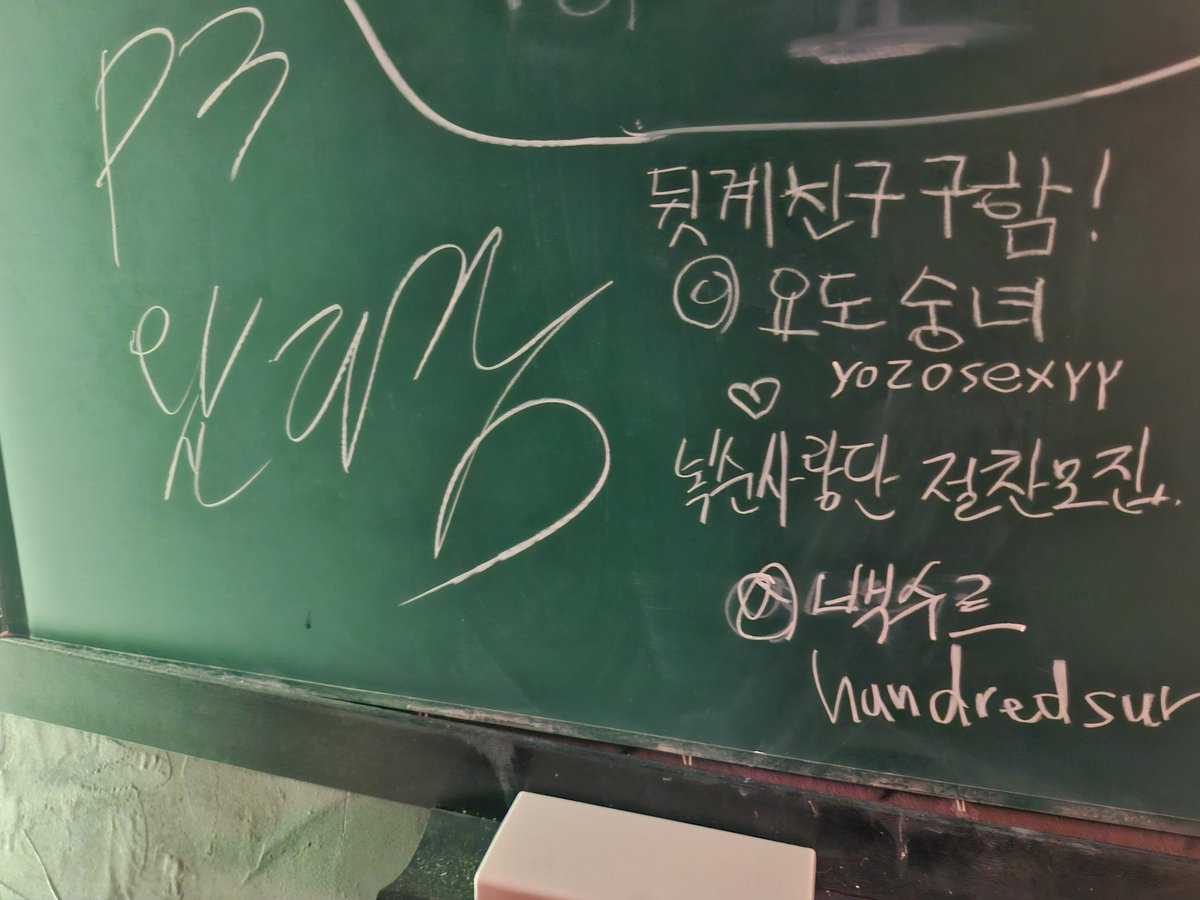 P3
뒷계친구 구함!
@ 요도숭녀
yozosexyy
♡
녹순사랑단 절찬모집.
@ 백수르
hundredsur